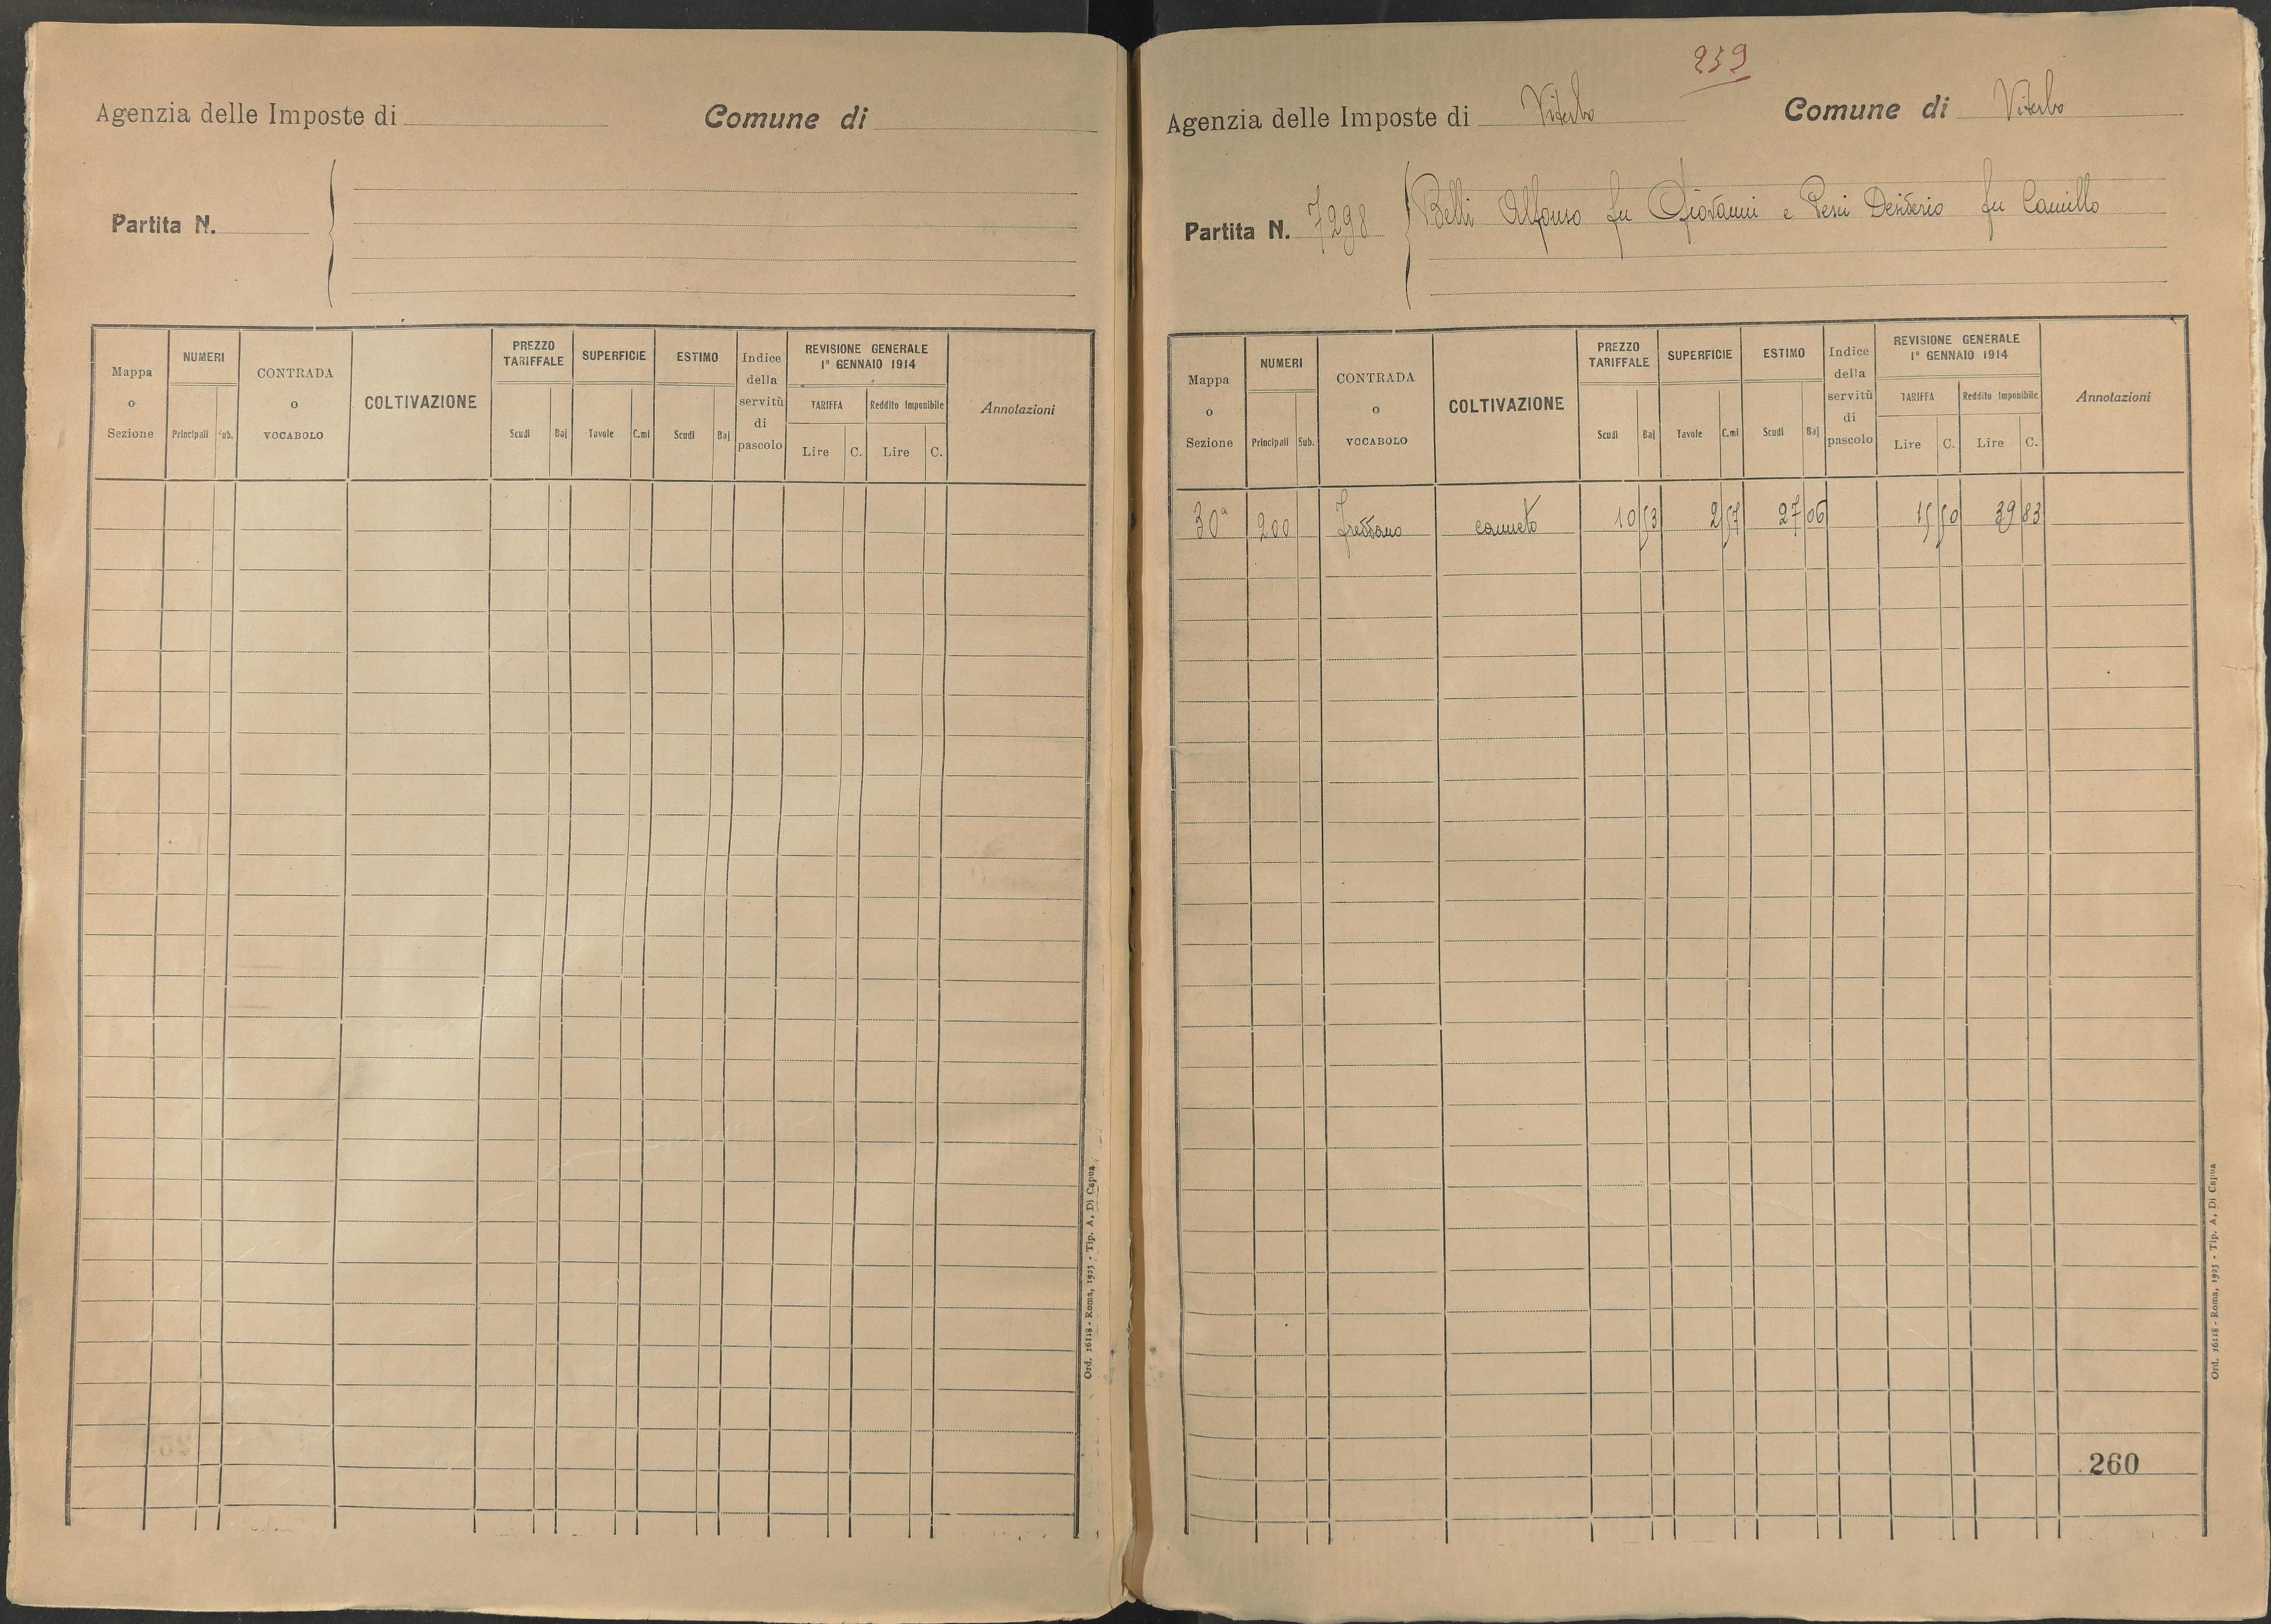 Agenzia delle Imposte di Comune di
Partita N.
Mappa o Sezione NUMERI CONTRADA o VOCABOLO COLTIVAZIONE PREZZO TARIFFALE SUPERFICIE ESTIMO Indice della servitù di pascolo REVISIONE GENERALE 1° GENNAIO 1914 Annotazioni
TARIFFA Reddito Imponibile
Principali Sub. Scudi Baj Tavole C.mi Scudi Baj Lire C. Lire C.
Ord. 16118 - Roma, 1923 - Tip. A. Di Capua
239
Agenzia delle Imposte di Viterbo Comune di Viterbo
Partita N. 7298 Belli Alfonso fu Giovanni e Pesci Desiderio fu Camillo
Mappa o Sezione NUMERI CONTRADA o VOCABOLO COLTIVAZIONE PREZZO TARIFFALE SUPERFICIE ESTIMO Indice della servitù di pascolo REVISIONE GENERALE 1° GENNAIO 1914 Annotazioni
TARIFFA Reddito Imponibile
Principali Sub. Scudi Baj Tavole C.mi Scudi Baj Lire C. Lire C.
30ª 200 canneto 10 53 2 57 27 06 15 50 39 83
260
Ord. 16118 - Roma, 1923 - Tip. A. Di Capua